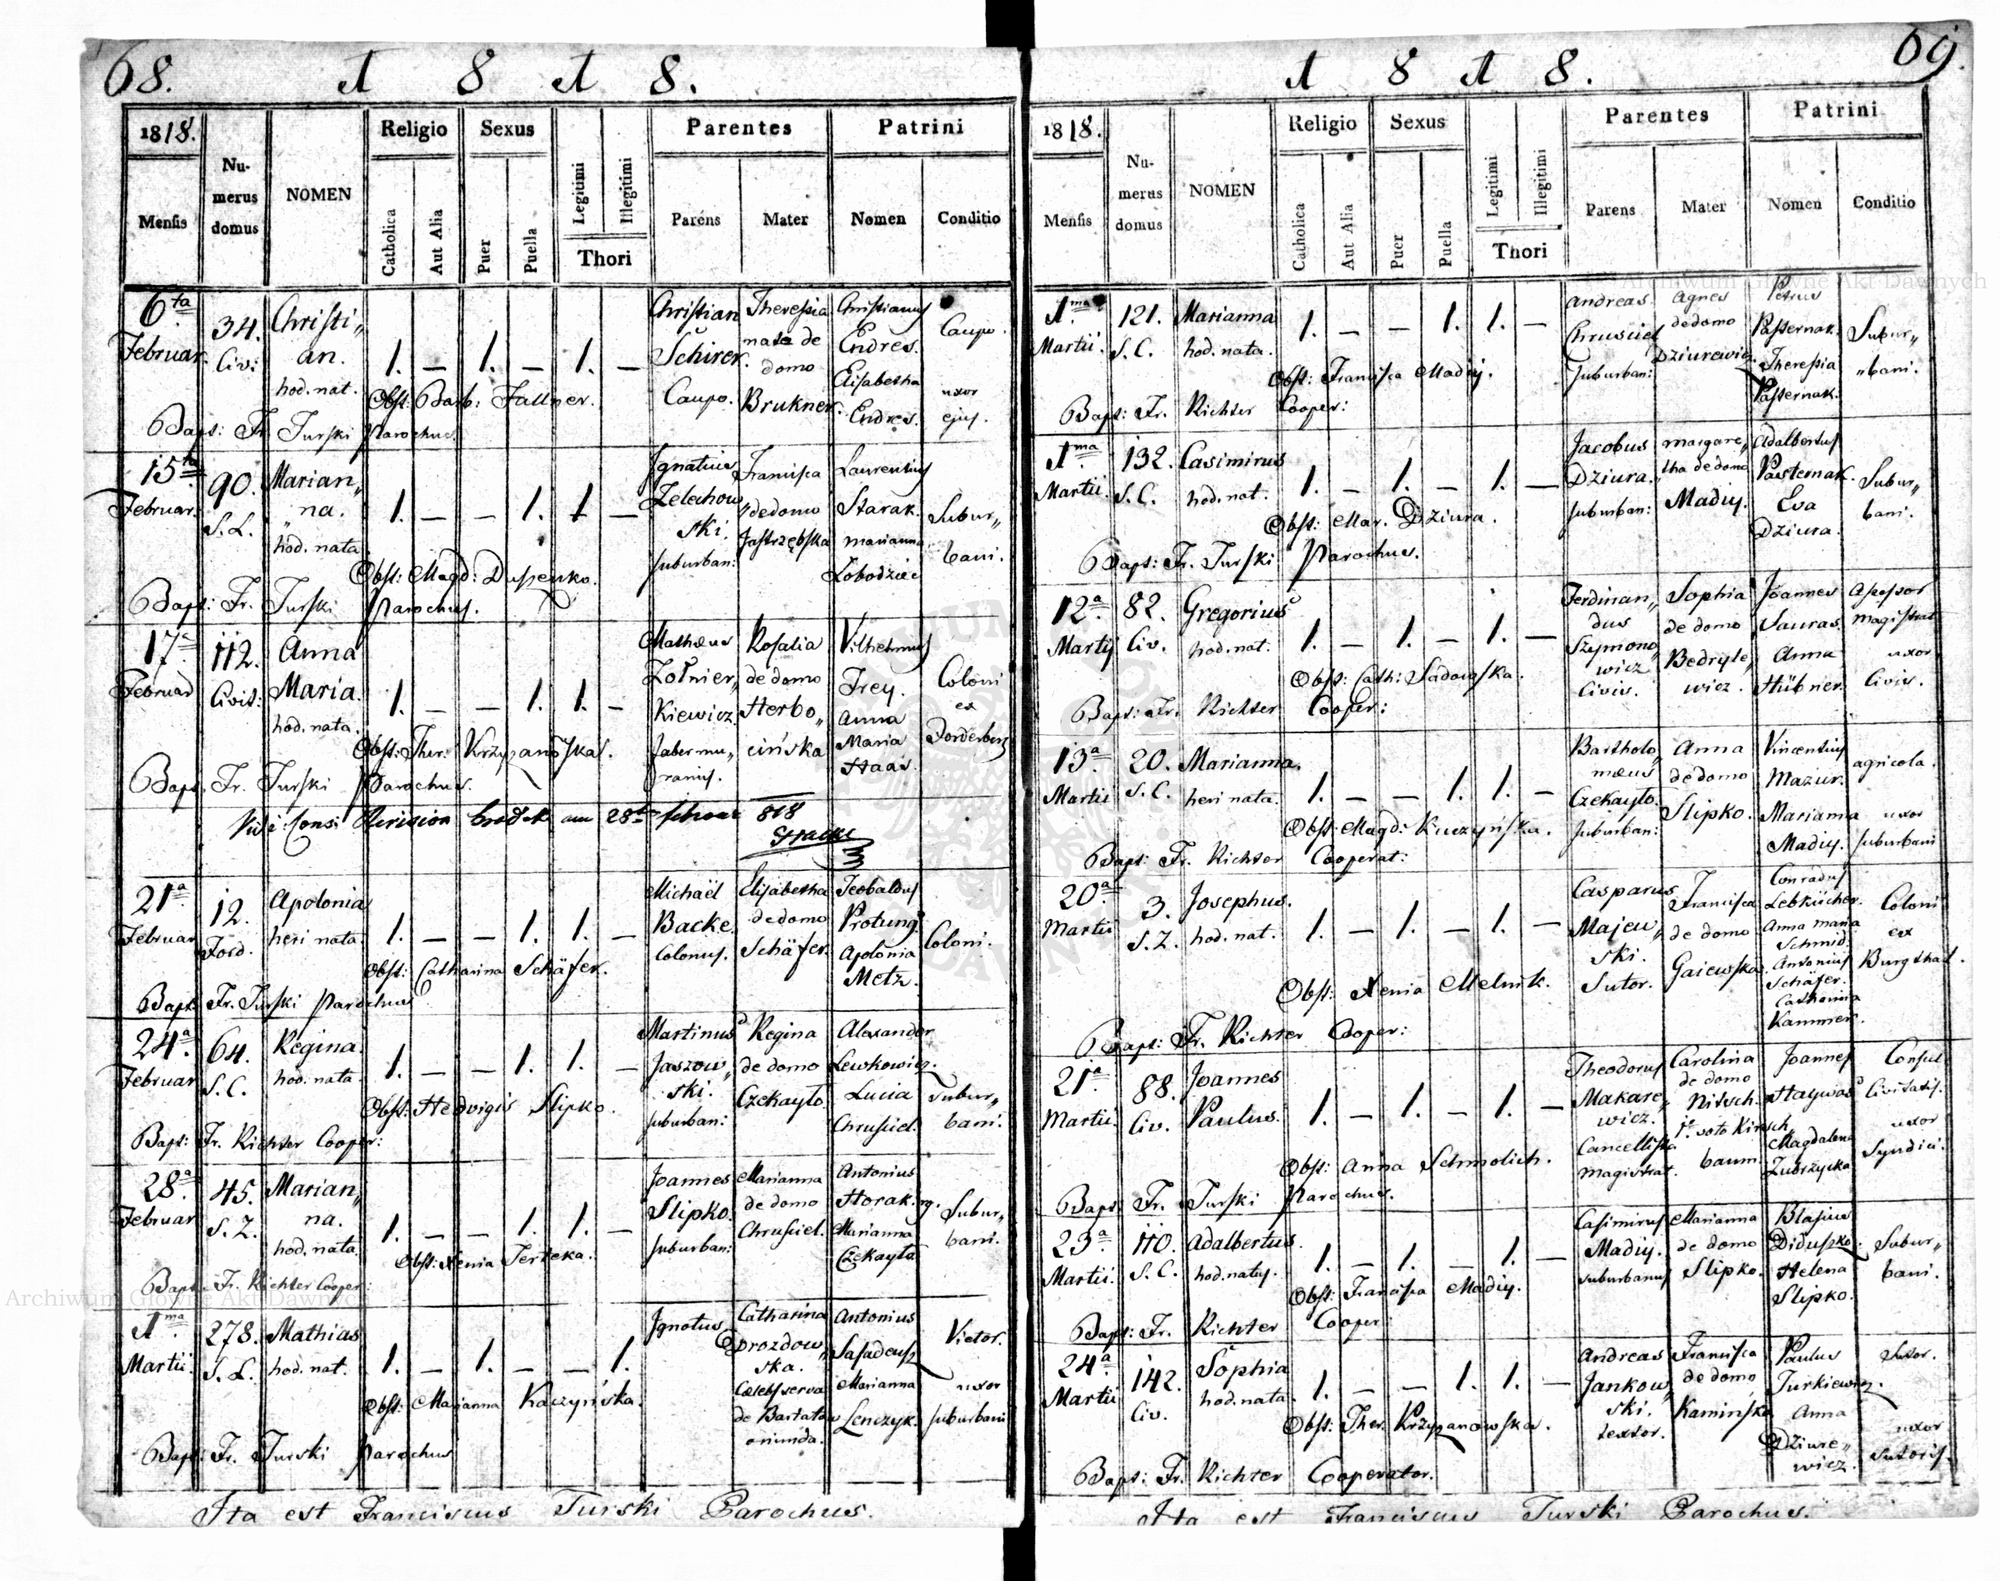 68. 1 8 1 8.
1818. Mensis
Numerus domus
NOMEN
Religio Catholica Aut Alia
Sexus Puer Puella
Legitimi Illegitimi Thori
Parentes Parens Mater
Patrini Nomen Conditio
6ta Februar. 34. Civ: Christi„ an. hod. nat. 1. — 1. — 1. — Christian Schirer. Caupo. Theresia nata de domo Brukner. Christianus Endres. Elisabetha Endres. Caupo. uxor ejus.
Obst: Barb: Fallner.
Bapt: Fr. Turski Parochus.
15ta Februar. 90. S. L. Marian„ na. hod. nata. 1. — — 1. 1. — Ignatius Zelechow ski. suburban: Francisca de domo Jastrzębska Laurentius Starak. Marianna Łobodziec Subur„ bani.
Obst: Magd: Duszenko.
Bapt: Fr. Turski Parochus.
17a Februar 112. Civit: Anna Maria. hod. nata. 1. — — 1. 1. — Mathæus Żołnier„ kiewicz. faber mu„ rarius. Rosalia de domo Herbo„ cińska Vilhelmus Frey. Anna Maria Haas. Coloni ex Vorderberg
Obst: Ther: Krzyzanoskal.
Bapt. Fr. Turski Parochus.
28ten 818
21a Februar 12. Vord. Apolonia heri nata 1. — — 1. 1. — Michaël Backe. Colonus. Elisabetha de domo Schäfer. Teobaldus Protung. Apolonia Metz. Coloni.
Obst: Catharina Schäfer.
Bapt: Fr. Turski Parochus
24a Februar 64. S. C. Regina. hod. nata 1. — — 1. 1. — Martinus Jaszow„ ski. suburban: Regina de domo Czekayło Alexander Lewkowicz. Lucia Chrusciel. Subur„ bani.
Obst: Hedvigis Slipko.
Bapt: Fr. Richter Cooper:
28a Februar 45. S. Z. Marian„ na. hod. nata. 1. — — 1. 1. — Joannes Slipko. suburban: Marianna de domo Chrusciel. Antonius Horak. Marianna Czekayła Subur„ bani.
Obst: Xenia Terteka.
Bapt. Fr. Richter Cooper:
1ma Martii. 278. S. L. Mathias hod. nat. 1. — 1. — — 1. Ignotus. Catharina Drozdow„ ska. Cælebs serva de Bartatow oriunda. Antonius Sasadeusz Marianna Lenczyk. Vietor. uxor suburbani
Obst: Marianna Kaczyńska.
Bapt: Fr. Turski Parochus
Ita est Franciscus Turski Parochus.
69. 1 8 1 8.
1818. Mensis
Numerus domus
NOMEN
Religio Catholica Aut Alia
Sexus Puer Puella
Legitimi Illegitimi Thori
Parentes Parens Mater
Patrini Nomen Conditio
1ma Martii. 121. S. C. Marianna hod. nata. 1. — — 1. 1. — Andreas Chrusciel suburban: Agnes de domo Dziurewicz Petrus Pasternak. Theresia Pasternak. Subur„ „bani.
Obst: Francisca Madiy.
Bapt: Fr. Richter Cooper:
1ma Martii. 132. S. C. Casimirus hod. nat. 1. — 1. — 1. — Jacobus Dziura. suburban: Margare„ tha de domo Madiy. Adalbertus Pasternak. Eva Dziura. Subur„ bani.
Obst: Mar. Dziura.
Bapt: Fr. Turski Parochus.
12a Martij 82. Civ. Gregorius hod. nat. 1. — 1. — 1. — Ferdinan„ dus Szymono„ wicz Civis. Sophia de domo Bedryle„ wicz. Joannes Sauras. Anna Hübner. Assessor magistrat. uxor Civis.
Obst: Cath: Sadowska.
Bapt: Fr. Richter Cooper:
13a Martii 20. S. C. Marianna. heri nata. 1. — — 1. 1. — Bartholo„ mæus Czekayło. suburban: Anna de domo Slipko. Vincentius Mazur. Marianna Madiy. agricola. uxor suburbani
Obst: Magd: Kuczyńska.
Bapt: Fr. Richter Cooperat:
20a Martii 3. S. Z. Josephus. hod. nat. 1. — 1. — 1. — Casparus Majew„ ski. Sutor. Francisca de domo Gaiewska. Conradus Lebkücher. Anna Maria Schmid. Antonius Schäfer. Catharina Kammer. Coloni ex Burgthal.
Obst: Xenia Melnik.
Bapt: Fr. Richter Cooper:
21a Martii 88. Civ. Joannes Paulus. 1. — 1. — 1. — Theodorus Makare„ wicz. Cancellista magistrat. Carolina de domo Nitsch. 1o voto Kirsch„ baum. Joannes Haywas Magdalena Zubrzycka Consul Civitatis. uxor Syndici.
Obst: Anna Schmolich.
Bapt: Fr. Turski Parochus.
23a Martii 110. S. C. Adalbertus. hod. natus. 1. — 1. — 1. — Casimirus Madiy. suburbanus Marianna de domo Slipko. Blasius Diduszko. Helena Slipko. Subur„ bani.
Obst: Francisca Madiy.
Bapt: Fr. Richter Cooper:
24a Martii 142. Civ. Sophia hod. nata. 1. — — 1. 1. — Andreas Jankow„ ski. textor. Francisca de domo Kamińska Paulus Turkiewicz. Anna Dziure„ wicz. Sutor. uxor sutoris.
Obst: Ther. Krzyzanowska.
Bapt: Fr. Richter Cooperator.
Ita est Franciscus Turski Parochus.
Archiwum Główne Akt Dawnych
Archiwum Główne Akt Dawnych